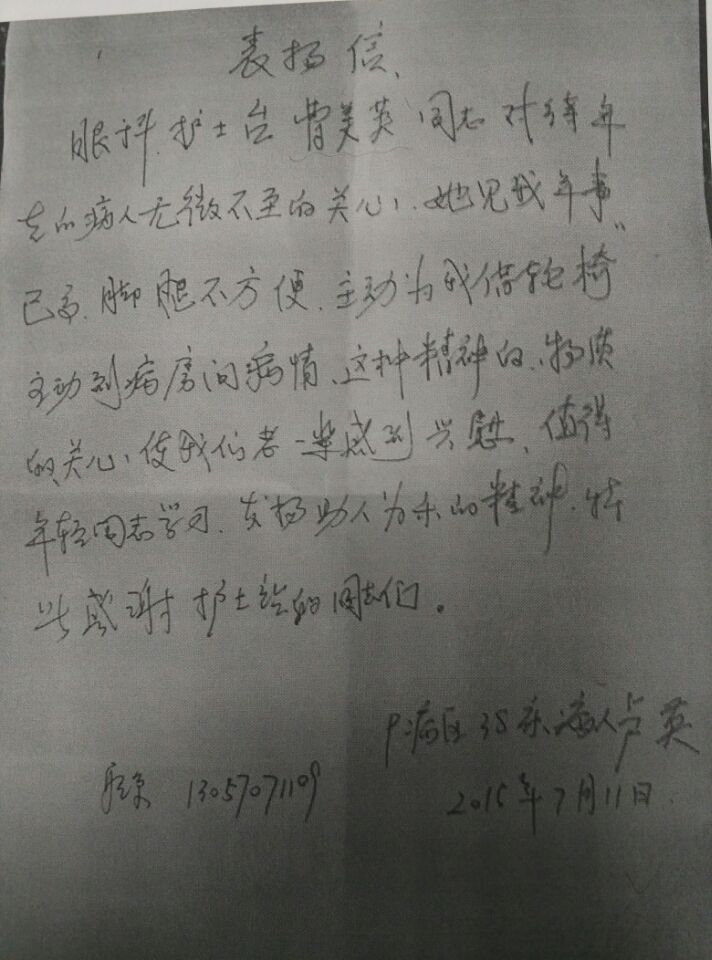 表扬信、
眼科护士台 曾美英同志对待年
老的病人无微不至的关心、她见我年事
已高、脚腿不方便、主动为我借轮椅
主动到病房问病情、这种精神的、物质
的关心、使我们老一辈感到兴慰、值得
年轻同志学习、发扬助人为乐的精神、特
此感谢护士站的同志们。
病区38床病人卢英
13057071109
2015年7月11日.